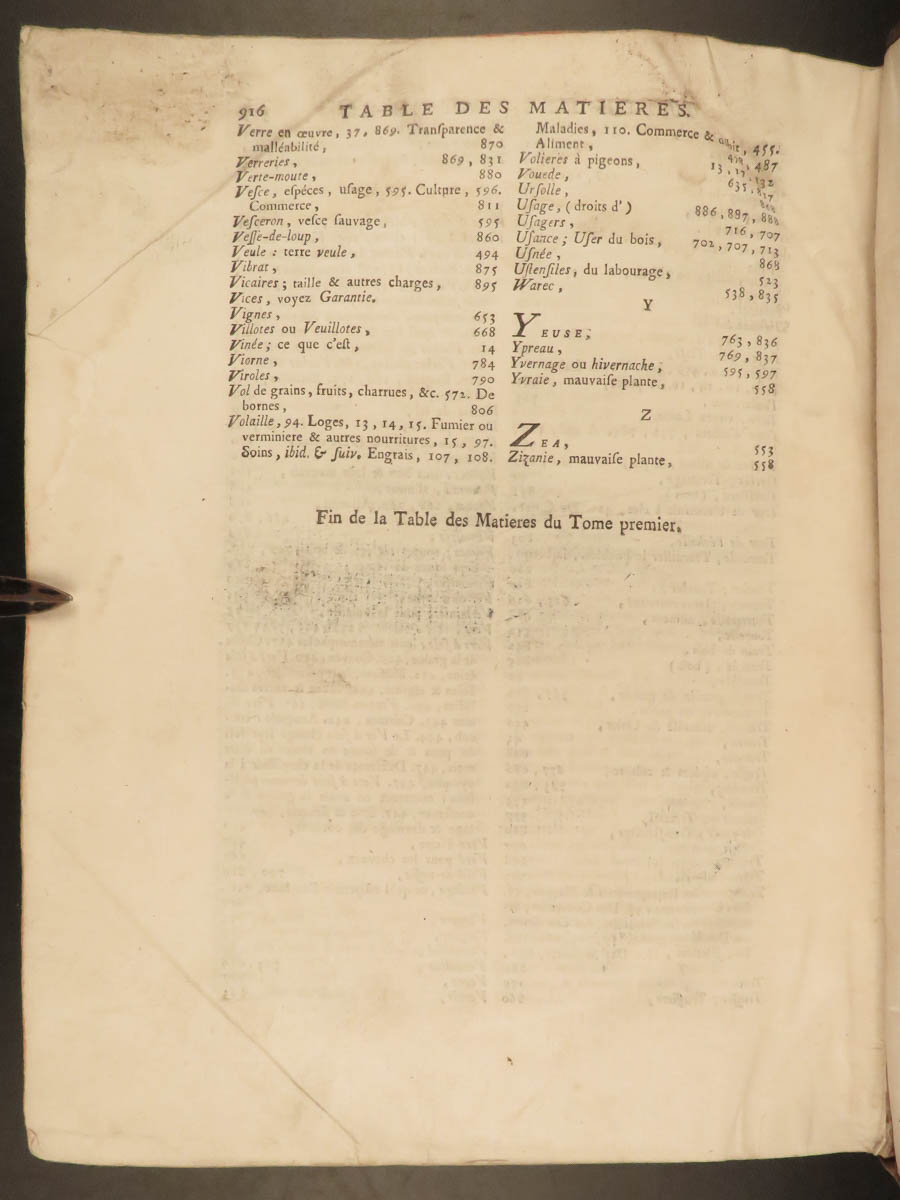 916 TABLE DES MATIERES.
Verre en œuvre, 37, 869. Tranſparence &
malléabilité, 870
Verreries, 869, 831
Verte-moute, 880
Veſce, eſpéces, uſage, 595. Culture, 596.
Commerce, 811
Veſceron, veſce ſauvage, 595
Veſſe-de-loup, 860
Veule : terre veule, 494
Vibrat, 875
Vicaires ; taille & autres charges, 895
Vices, voyez Garantie.
Vignes, 653
Villotes ou Veuillotes, 668
Vinée ; ce que c'eſt, 14
Viorne, 784
Viroles, 790
Vol de grains, fruits, charrues, &c. 572. De
bornes, 806
Volaille, 94. Loges, 13, 14, 15. Fumier ou
verminiere & autres nourritures, 15, 97.
Soins, ibid. & ſuiv. Engrais, 107, 108.
Maladies, 110. Commerce &
Aliment, 455.
Volieres à pigeons, 487
Vouede, 635
Urſolle,
Uſage, (droits d') 886, 887, 888
Uſagers, 716, 707
Uſance ; Uſer du bois, 702, 707, 713
Uſnée, 868
Uſtenſiles, du labourage, 523
Warec, 538, 835
Y
YEUSE, 763, 836
Ypreau, 769, 837
Yvernage ou hivernache, 595, 597
Yvraie, mauvaiſe plante, 558
Z
ZEA, 553
Zizanie, mauvaiſe plante, 558
Fin de la Table des Matieres du Tome premier.